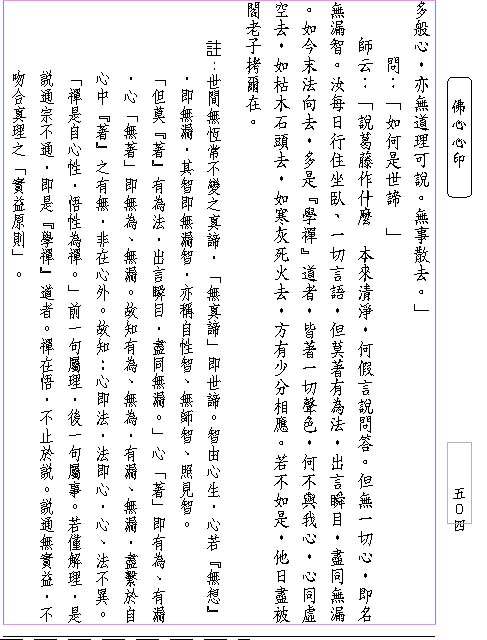 佛心心印
五０四
多般心，亦無道理可說。無事散去。」
問：「如何是世諦　」
師云：「說葛藤作什麼　本來清淨，何假言說問答。但無一切心，即名
無漏智。汝每日行住坐臥、一切言語，但莫著有為法，出言瞬目，盡同無漏
。如今末法向去，多是『學禪』道者，皆著一切聲色，何不與我心，心同虛
空去，如枯木石頭去，如寒灰死火去，方有少分相應。若不如是，他日盡被
閻老子拷爾在。
註：世間無恆常不變之真諦，「無真諦」即世諦。智由心生，心若『無想』
，即無漏，其智即無漏智，亦稱自性智、無師智、照見智。
「但莫『著』有為法，出言瞬目，盡同無漏。」心「著」即有為、有漏
，心「無著」即無為、無漏。故知有為、無為，有漏、無漏，盡繫於自
心中『著』之有無，非在心外。故知：心即法，法即心，心、法不異。
「禪是自心性，悟性為禪。」前一句屬理，後一句屬事。若僅解理，是
說通宗不通，即是『學禪』道者。禪在悟，不止於說。說通無實益，不
吻合真理之「實益原則」。